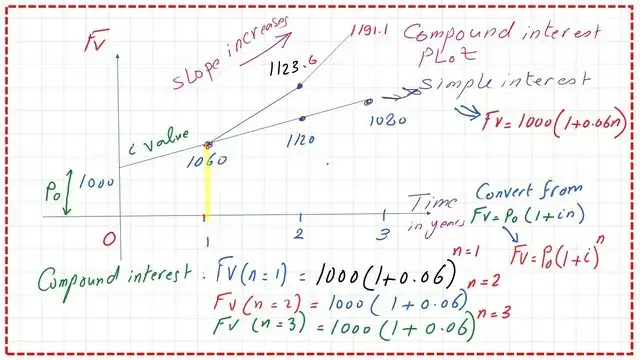 FV
slope increases
1191.1
1123.6
Compound interest
PLOT
simple interest
FV = 1000(1+0.06n)
c value
1060
1120
1080
P₀
1000
0
1
2
3
Time
in years
Convert from
FV = P₀(1+in)
FV = P₀(1+i)ⁿ
Compound interest. FV(n=1) = 1000(1+0.06) n=1
FV(n=2) = 1000(1+0.06) n=2
FV(n=3) = 1000(1+0.06) n=3